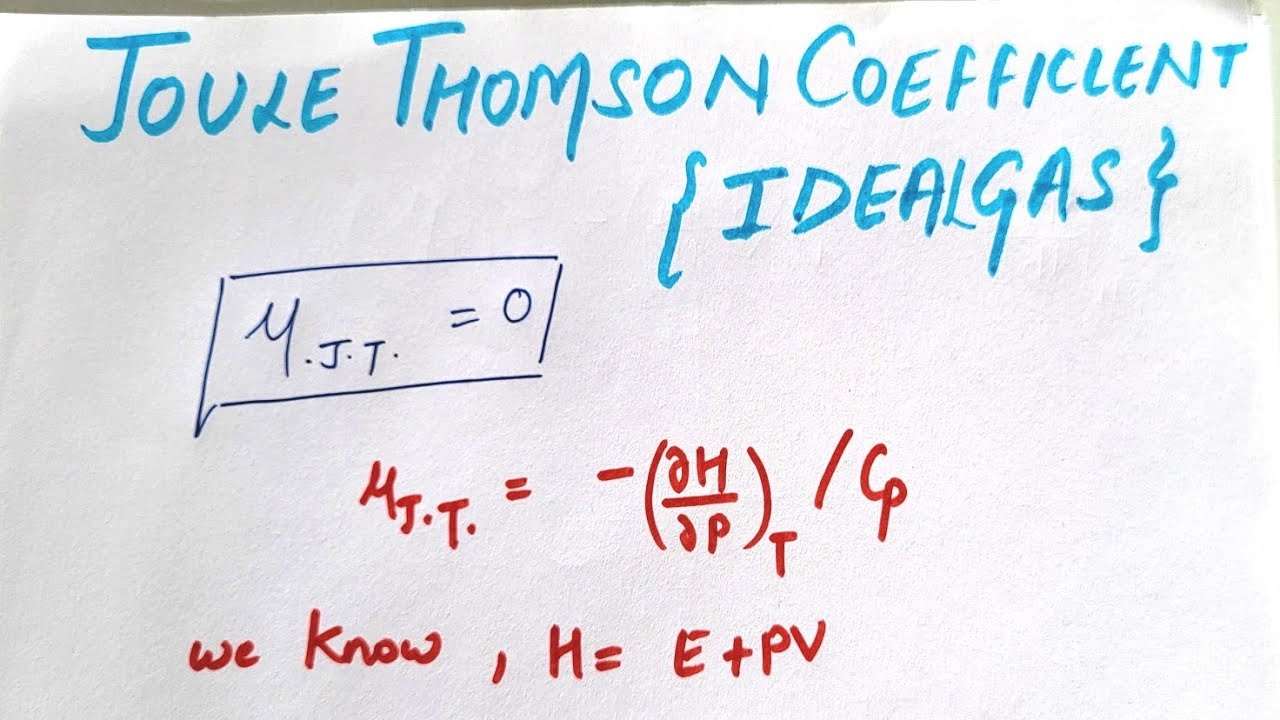 JOULE THOMSON COEFFICIENT
{IDEALGAS}
μ.J.T. = 0
μJ.T. = -(∂H/∂P)T / Cp
we know, H = E+PV